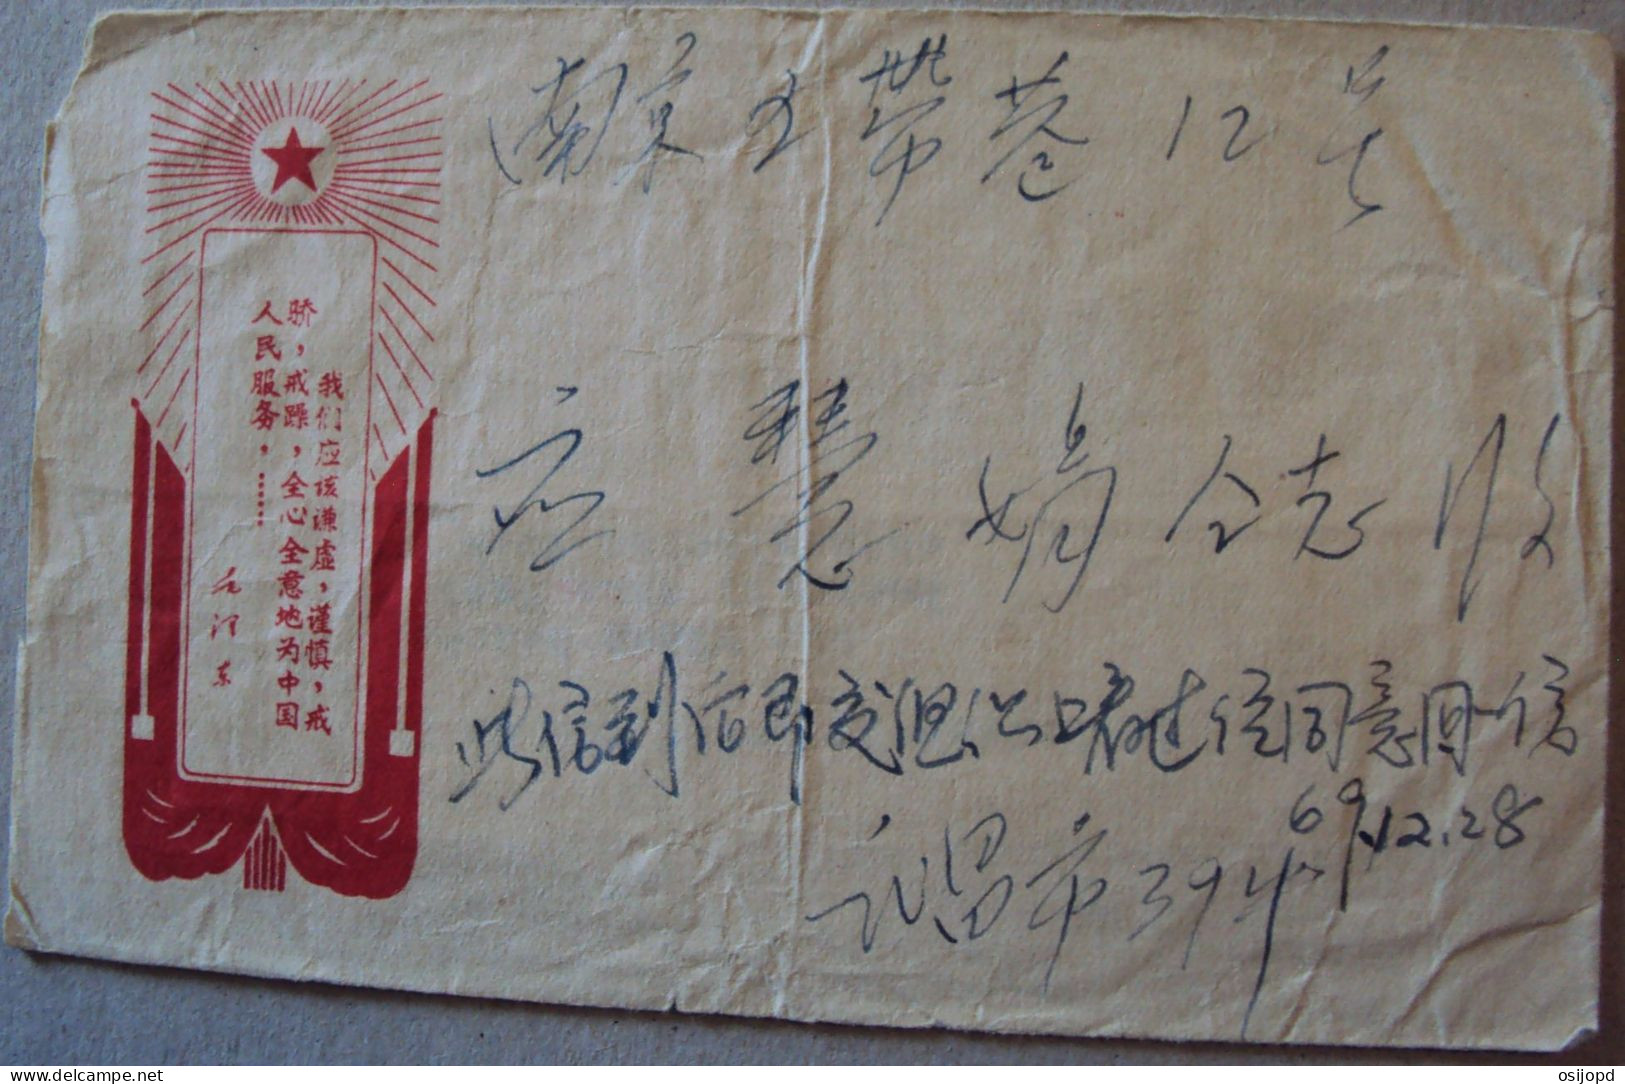 我们应该谦虚，谨慎，戒
骄，戒躁，全心全意地为中国
人民服务，……
毛泽东
南京玉带巷12号
应慧娟仝志收
此信到后即交
同意回信
69.12.28
osijopd